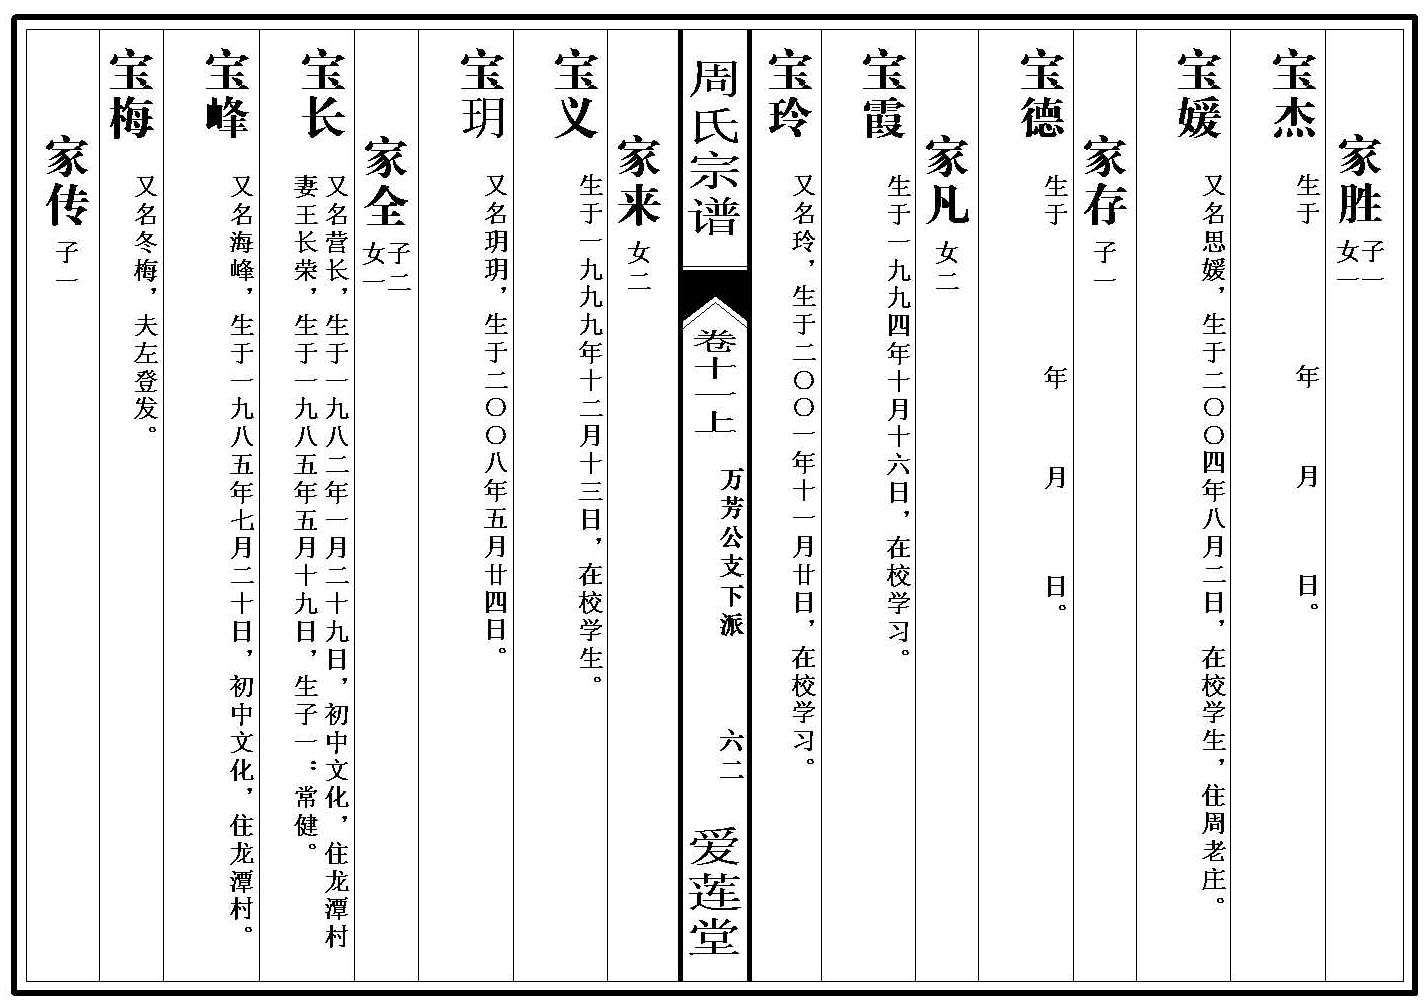 家胜 子一女一
宝杰 生于 年 月 日。
宝媛 又名思媛，生于二〇〇四年八月二日，在校学生，住周老庄。
家存 子一
宝德 生于 年 月 日。
家凡 女二
宝霞 生于一九九四年十月十六日，在校学习。
宝玲 又名玲，生于二〇〇一年十一月廿日，在校学习。
周氏宗谱
卷十一上
万芳公支下派
六二
爱莲堂
家来 女二
宝义 生于一九九九年十二月十三日，在校学生。
宝玥 又名玥玥，生于二〇〇八年五月廿四日。
家全 子二女一
宝长 又名营长，生于一九八二年一月二十九日，初中文化，住龙潭村
妻王长荣，生于一九八五年五月十九日，生子一：常健。
宝峰 又名海峰，生于一九八五年七月二十日，初中文化，住龙潭村。
宝梅 又名冬梅，夫左登发。
家传 子一